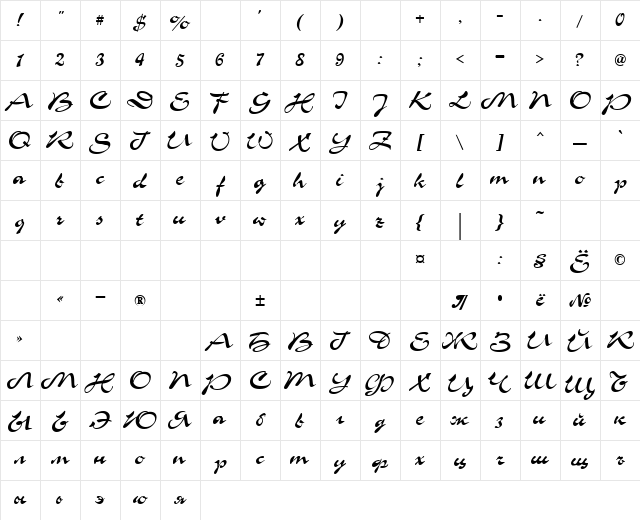 ! " # $ % ' ( ) + , - . / 0
1 2 3 4 5 6 7 8 9 : ; < = > ? @
A B C D E F G H I J K L M N O P
Q R S T U V W X Y Z [ \ ] ^ _ `
a b c d e f g h i j k l m n o p
q r s t u v w x y z { | } ~
¤ : § Ё ©
« - ® ± ¶ · ё №
» А Б В Г Д Е Ж З И Й К
Л М Н О П Р С Т У Ф Х Ц Ч Ш Щ Ъ
Ы Ь Э Ю Я а б в г д е ж з и й к
л м н о п р с т у ф х ц ч ш щ ъ
ы ь э ю я